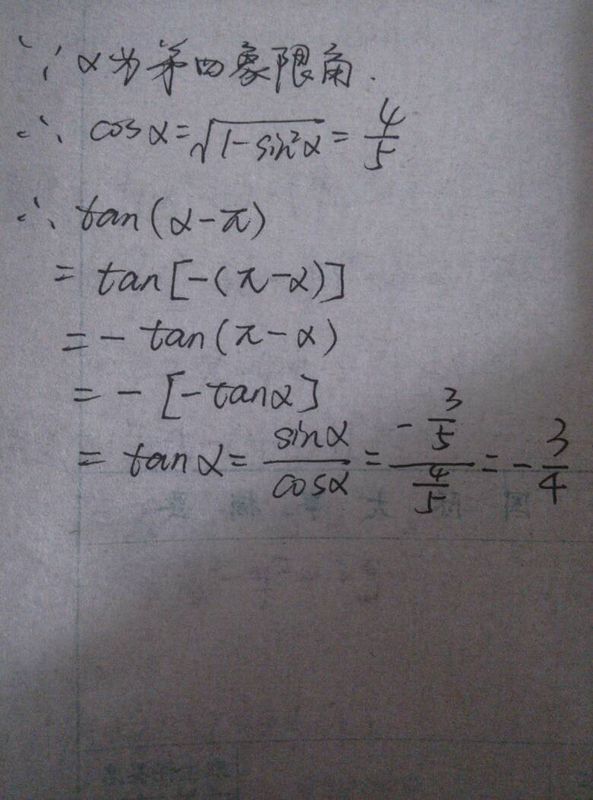 ∵ α为第四象限角.
∴ cosα=√(1-sin²α)=4/5
∴ tan(α-π)
= tan[-(π-α)]
=- tan(π-α)
= - [-tanα]
= tanα= sinα/cosα = (-3/5)/(4/5) = -3/4